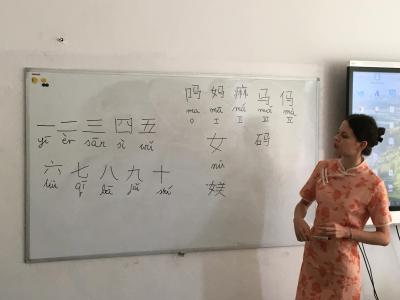 吗 妈 痲 马
ma mā má mǎ mà
0 I II III IV
一 二 三 四 五
yī èr sān sì wǔ
女 码
六 七 八 九 十
liù qī bā jiǔ shí